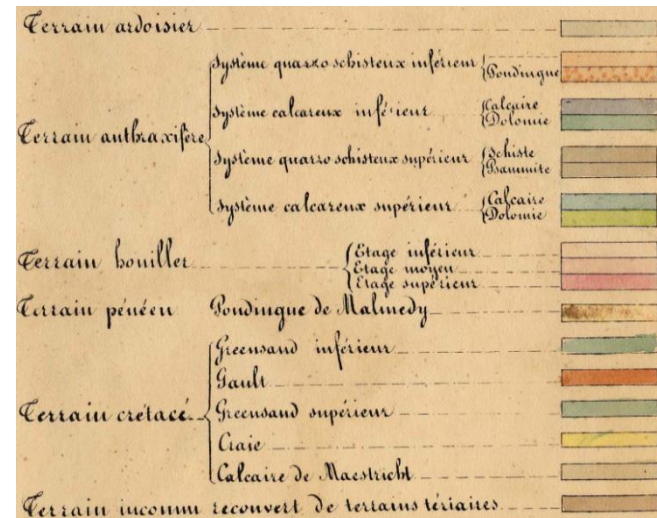 Terrain ardoisier
Système quarzo schisteux inférieur
Poudingue
Système calcareux inférieur
Calcaire
Dolomie
Terrain anthraxifère
Système quarzo schisteux supérieur
Schiste
Psammite
Système calcareux supérieur
Calcaire
Dolomie
Terrain houiller
Etage inférieur
Etage moyen
Etage supérieur
Terrain pénéen Poudingue de Malmedy
Greensand inférieur
Gault
Terrain crétacé
Greensand supérieur
Craie
Calcaire de Maestricht
Terrain inconnu recouvert de terrains tériaires